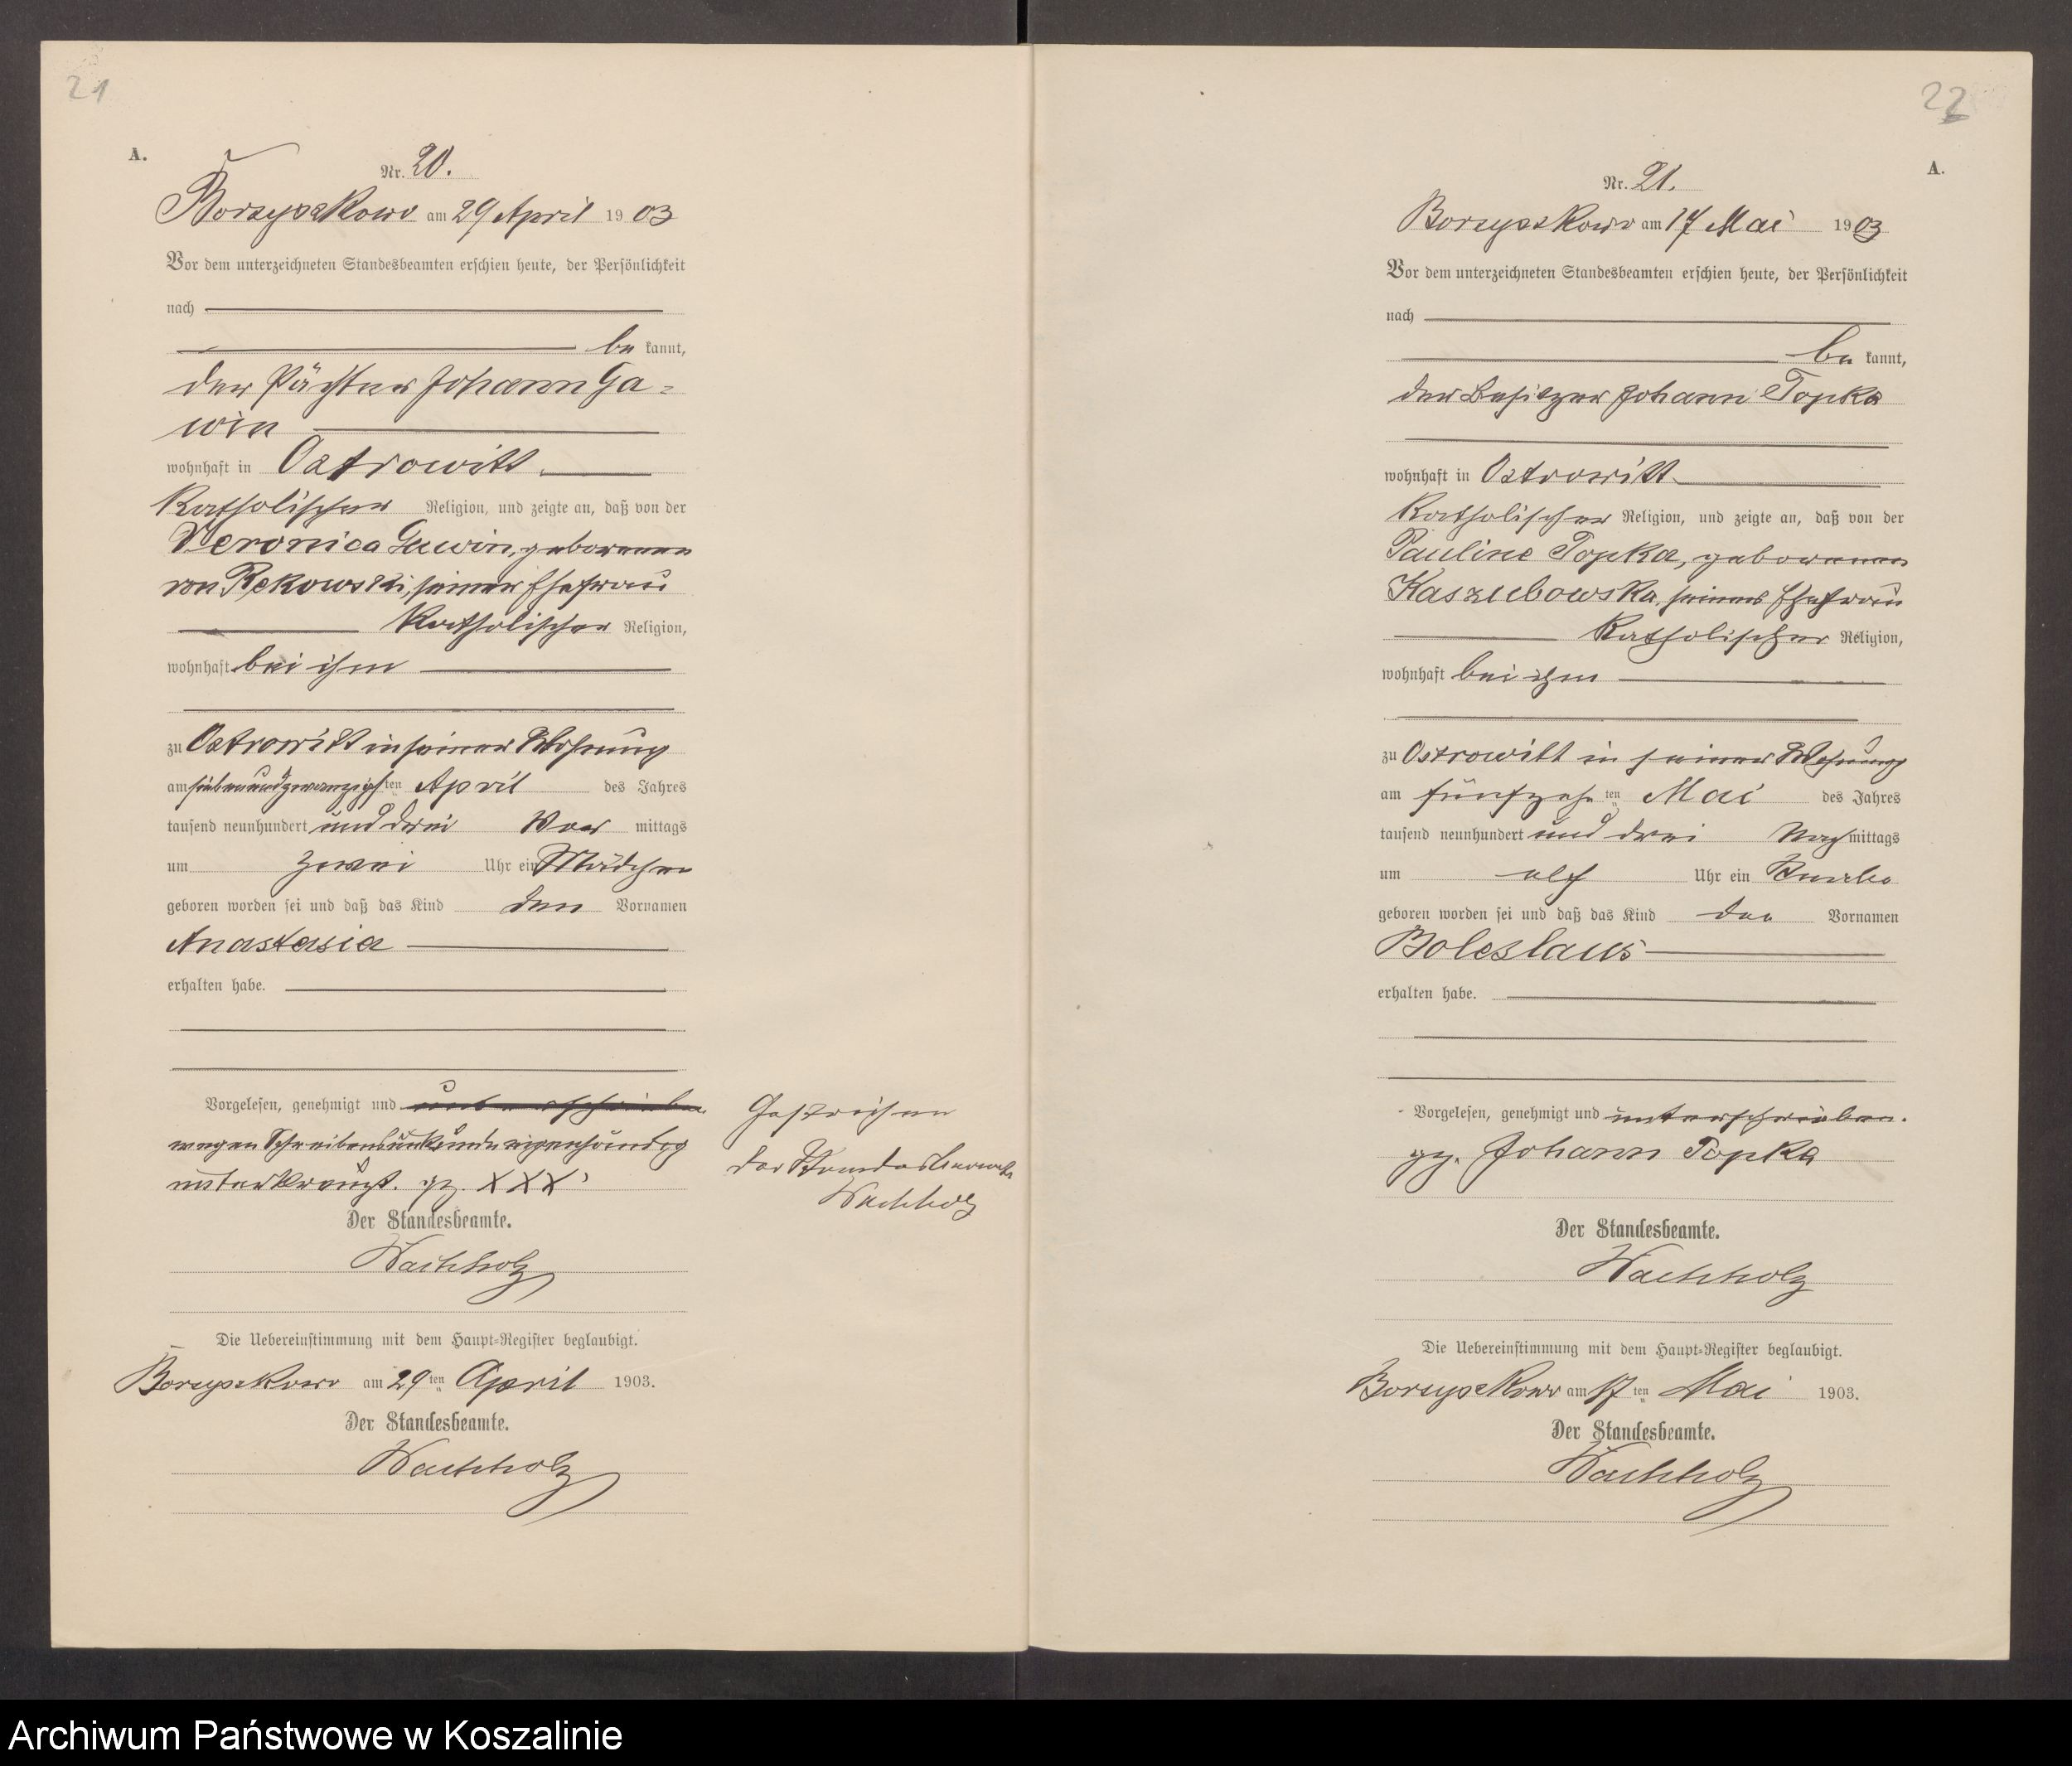 21
A.
Nr. 20.
Borzyszkowo am 29 April 1903
Vor dem unterzeichneten Standesbeamten erschien heute, der Persönlichkeit
nach
be kannt,
der Pächter Johann Ga=
win
wohnhaft in Ostrowitt
katholischer Religion, und zeigte an, daß von der
Veronica Gawin, geborenen
von Rekowski, seiner Ehefrau
katholischer Religion,
wohnhaft bei ihm
zu Ostrowitt in seiner Wohnung
am siebenundzwanzigsten April des Jahres
tausend neunhundert und drei Vor mittags
um zwei Uhr ein Mädchen
geboren worden sei und daß das Kind den Vornamen
Anastasia
erhalten habe.
Vorgelesen, genehmigt und unterschrieben
wegen Schreibensunkunde eigenhändig
unterkreuzt. gz. XXX
Gestrichen
Der Standesbeamte
Wachholz
Der Standesbeamte.
Wachholz
Die Uebereinstimmung mit dem Haupt-Register beglaubigt.
Borzyszkowo am 29 ten April 1903.
Der Standesbeamte.
Wachholz
22
A.
Nr. 21.
Borzyszkowo am 17 Mai 1903
Vor dem unterzeichneten Standesbeamten erschien heute, der Persönlichkeit
nach
be kannt,
der Besitzer Johann Topka
wohnhaft in Ostrowitt
katholischer Religion, und zeigte an, daß von der
Pauline Topka, geborenen
Kaszubowska, seiner Ehefrau
katholischer Religion,
wohnhaft bei ihm
zu Ostrowitt in seiner Wohnung
am fünfzehn ten Mai des Jahres
tausend neunhundert und drei Nach mittags
um elf Uhr ein Knabe
geboren worden sei und daß das Kind den Vornamen
Boleslaus
erhalten habe.
Vorgelesen, genehmigt und unterschrieben.
gz. Johann Topka
Der Standesbeamte.
Wachholz
Die Uebereinstimmung mit dem Haupt-Register beglaubigt.
Borzyszkowo am 17 ten Mai 1903.
Der Standesbeamte.
Wachholz
Archiwum Państwowe w Koszalinie